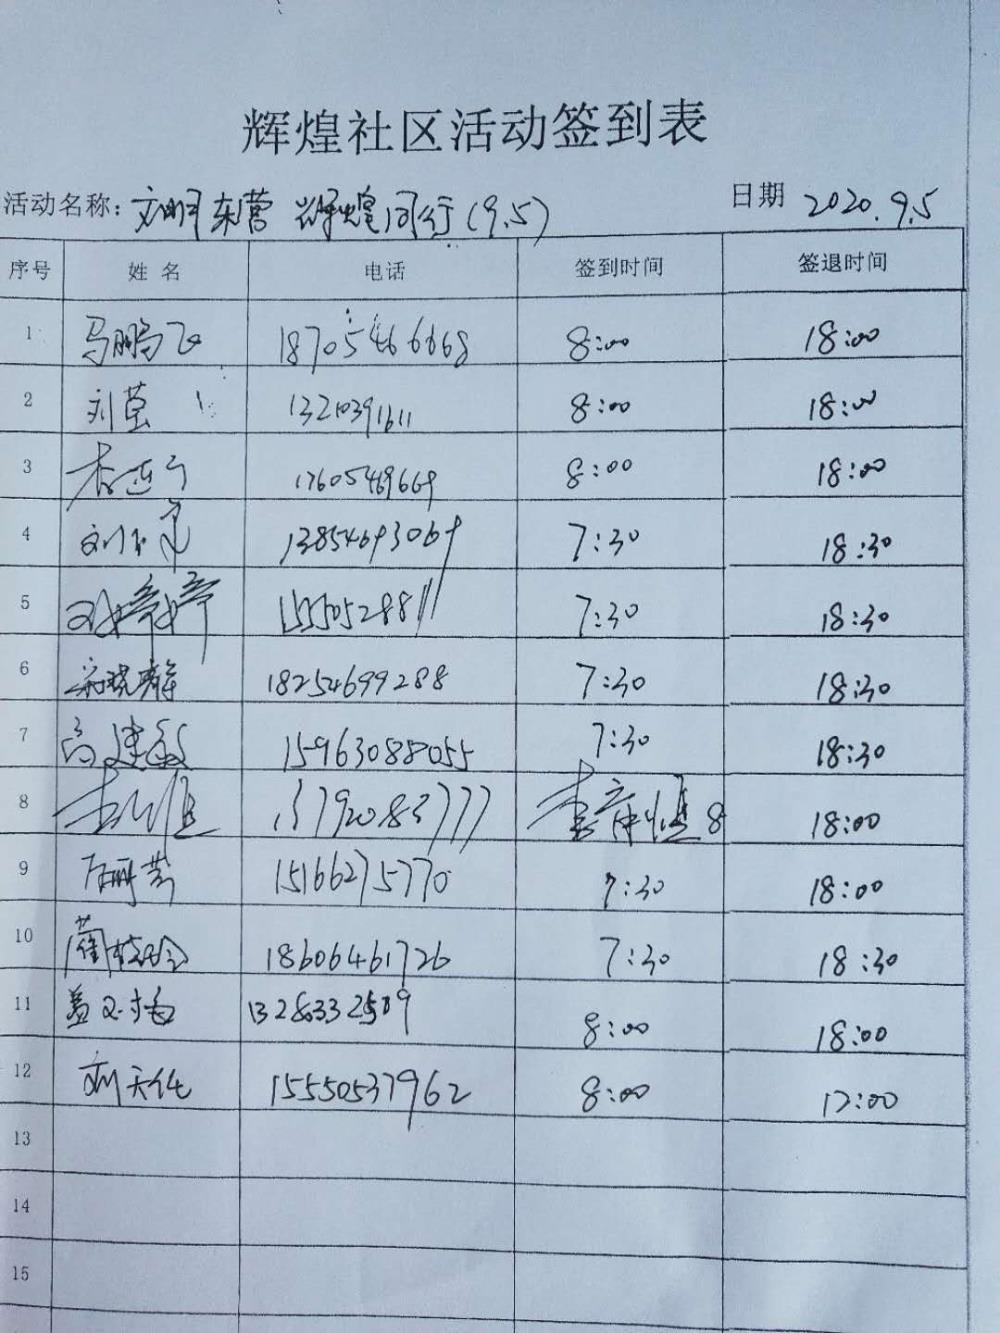 辉煌社区活动签到表
活动名称：文明东营 辉煌同行(9.5) 日期 2020.9.5
序号 姓名 电话 签到时间 签退时间
1 马鹏飞 18705466668 8:00 18:00
2 刘莹 13210391611 8:00 18:00
3 17605469669 8:00 18:00
4 13854693069 7:30 18:30
5 刘婷婷 15550528811 7:30 18:30
6 宋晓静 18254699288 7:30 18:30
7 高建敏 15963088055 7:30 18:30
8 13792083777 8 18:00
9 15166275770 7:30 18:00
10 18606461726 7:30 18:30
11 盖 8:00 18:00
12 刘天化 15550537962 8:00 17:00
13
14
15